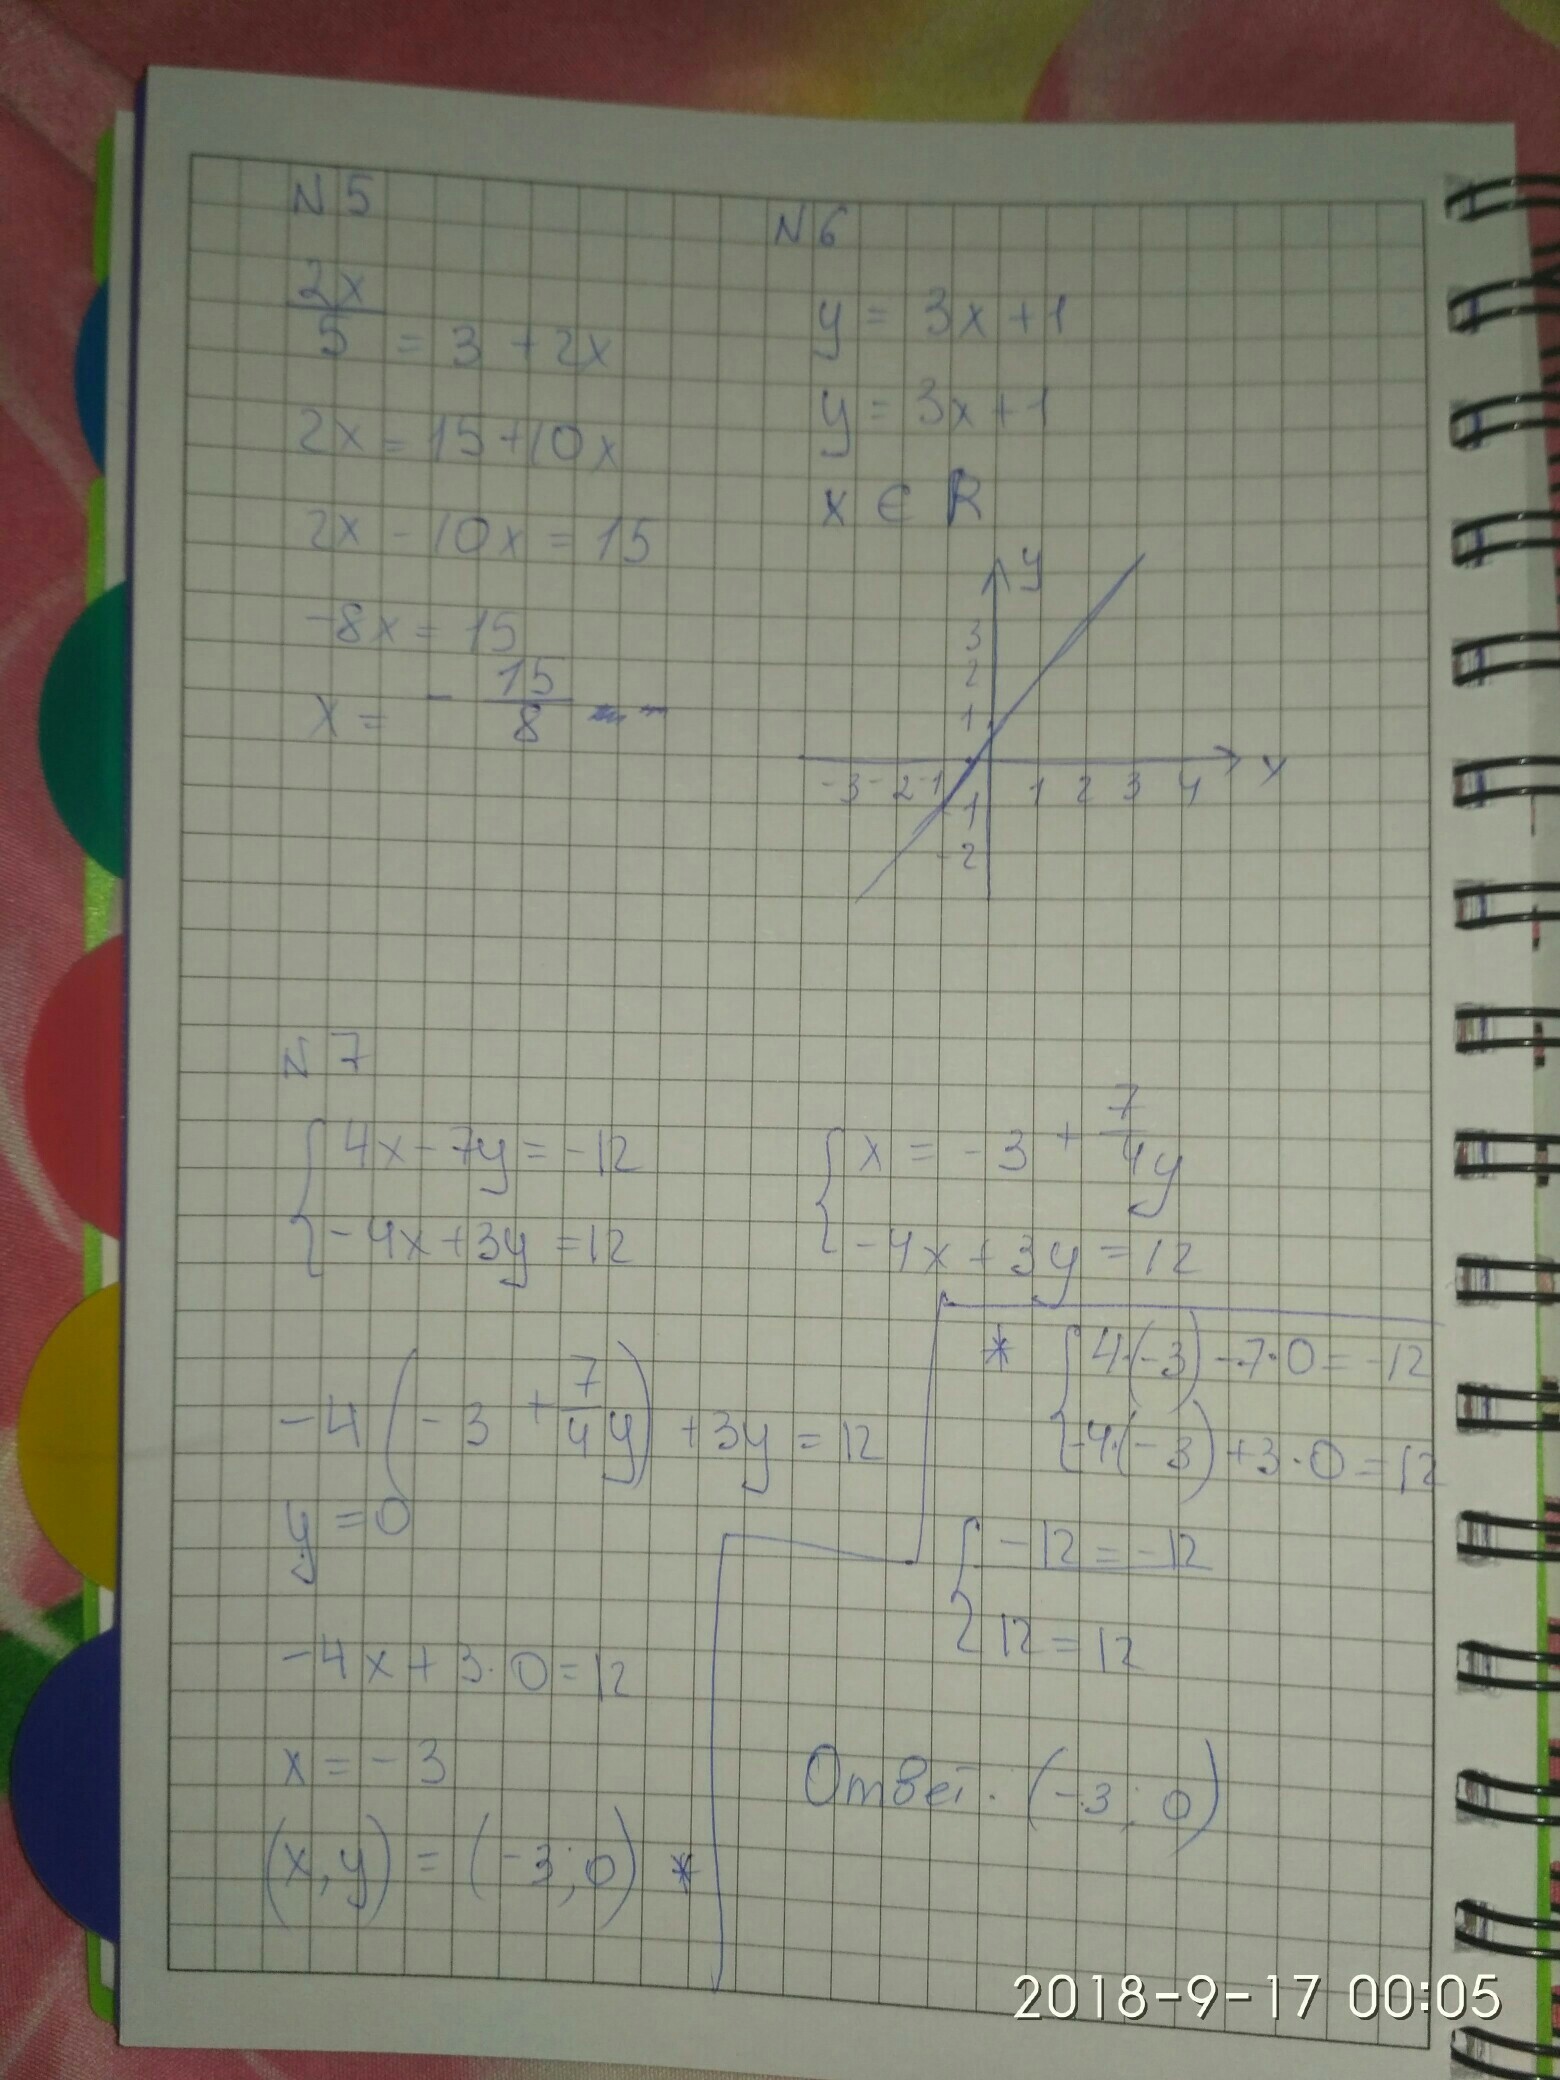 N 5
2x/5 = 3 + 2x
2x = 15 + 10x
2x - 10x = 15
-8x = 15
x = - 15/8
N 6
y = 3x + 1
y = 3x + 1
x ∈ R
y
3
2
1
-3 -2 -1 1 2 3 4
-1
-2
N 7
{ 4x - 7y = -12
{ -4x + 3y = 12
{ x = -3 + 7/4 y
{ -4x + 3y = 12
-4 ( -3 + 7/4 y ) + 3y = 12
y = 0
-4x + 3·0 = 12
x = -3
(x, y) = (-3; 0) *
* { 4·(-3) - 7·0 = -12
{ -4·(-3) + 3·0 = 12
{ -12 = -12
{ 12 = 12
Ответ. (-3; 0)
2018-9-17 00:05